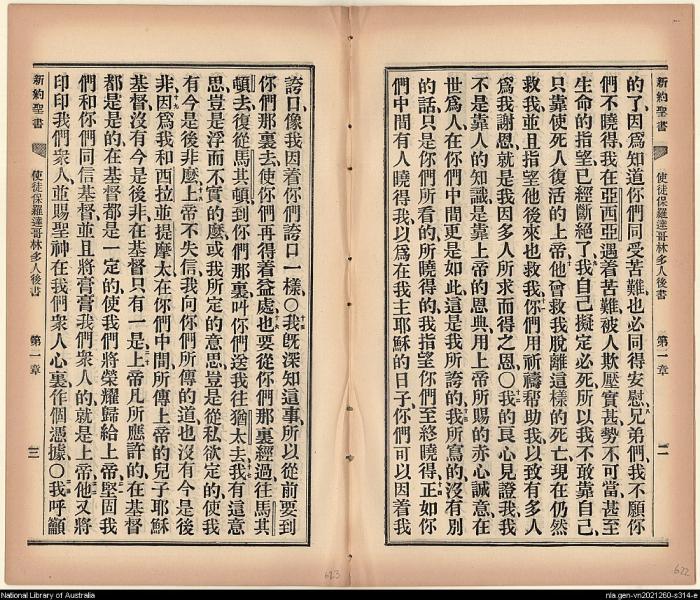 新約聖書
使徒保羅達哥林多人後書
第一章
二
的了因爲知道你們同受苦難也必同得安慰八兄弟們我不願你
們不曉得我在亞西亞遇着苦難被人欺壓實甚勢不可當甚至
生命的指望已經斷絕了我自己擬定必死所以我不敢靠自己
只靠使死人復活的上帝他曾救我脫離這樣的死亡現在仍然
救我並且指望他後來也救我你們用祈禱幫助我以致有多人
爲我謝恩就是我因多人所求而得之恩〇我的良心見證我我
不是靠人的知識是靠上帝的恩典用上帝所賜的赤心誠意在
世爲人在你們中間更是如此這是我所誇的我所寫的沒有別
的話只是你們所看的所曉得的我指望你們至終曉得正如你
們中間有人曉得我以爲在我主耶穌的日子你們可以因着我
誇口像我因着你們誇口一樣〇我旣深知這事所以從前要到
你們那裏去使你們再得着益處也要從你們那裏經過往馬其
頓去復從馬其頓到你們那裏叫你們送我往猶太去我有這意
思豈是浮而不實的麼或我所定的意思豈是從私欲定的使我
有今是後非麼上帝不失信我向你們所傳的道也沒有今是後
非因爲我和西拉並提摩太在你們中間所傳上帝的兒子耶穌
基督沒有今是後非在基督只有一是上帝凡所應許的在基督
都是是的在基督都是一定的使我們將榮耀歸給上帝堅固我
們和你們同信基督並且將膏膏我們衆人的就是上帝他又將
印印我們衆人並賜聖神在我們衆人心裏作個憑據〇我呼籲
新約聖書
使徒保羅達哥林多人後書
第一章
三
623
622
National Library of Australia
nla.gen-vn2021260-s314-e